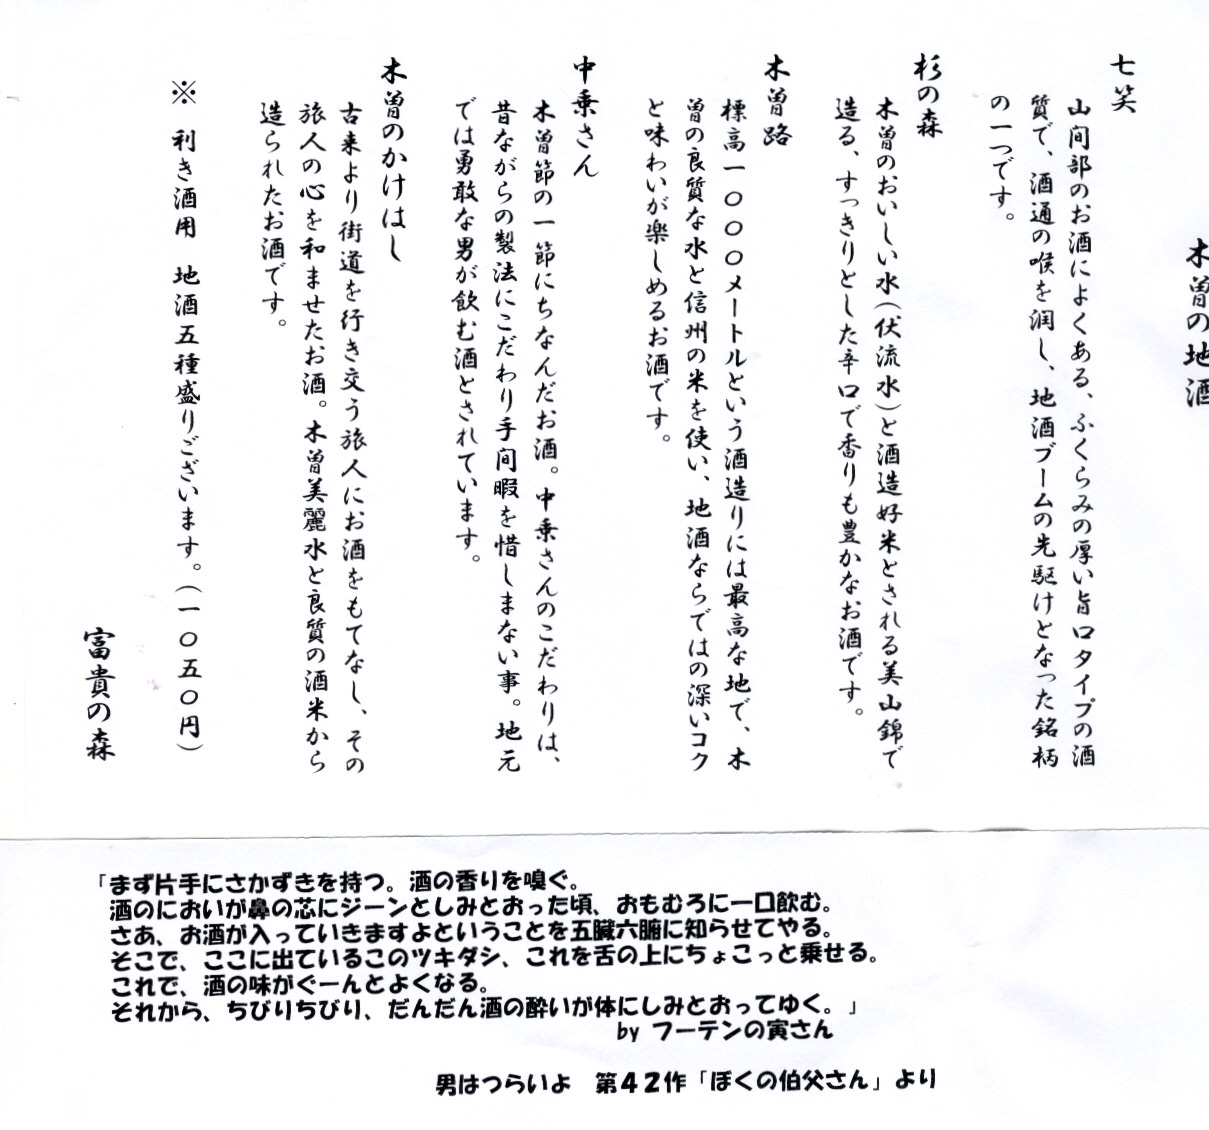 木曽の地酒
七笑
山間部のお酒によくある、ふくらみの厚い旨口タイプの酒
質で、酒通の喉を潤し、地酒ブームの先駆けとなった銘柄
の一つです。
杉の森
木曽のおいしい水（伏流水）と酒造好米とされる美山錦で
造る、すっきりとした辛口で香りも豊かなお酒です。
木曽路
標高一〇〇〇メートルという酒造りには最高な地で、木
曽の良質な水と信州の米を使い、地酒ならではの深いコク
と味わいが楽しめるお酒です。
中乗さん
木曽節の一節にちなんだお酒。中乗さんのこだわりは、
昔ながらの製法にこだわり手間暇を惜しまない事。地元
では勇敢な男が飲む酒とされています。
木曽のかけはし
古来より街道を行き交う旅人にお酒をもてなし、その
旅人の心を和ませたお酒。木曽美麗水と良質の酒米から
造られたお酒です。
※ 利き酒用 地酒五種盛りございます。（一〇五〇円）
富貴の森
「まず片手にさかずきを持つ。酒の香りを嗅ぐ。
酒のにおいが鼻の芯にジーンとしみとおった頃、おもむろに一口飲む。
さあ、お酒が入っていきますよということを五臓六腑に知らせてやる。
そこで、ここに出ているこのツキダシ、これを舌の上にちょこっと乗せる。
これで、酒の味がぐーんとよくなる。
それから、ちびりちびり、だんだん酒の酔いが体にしみとおってゆく。」
by フーテンの寅さん
男はつらいよ 第４２作「ぼくの伯父さん」より